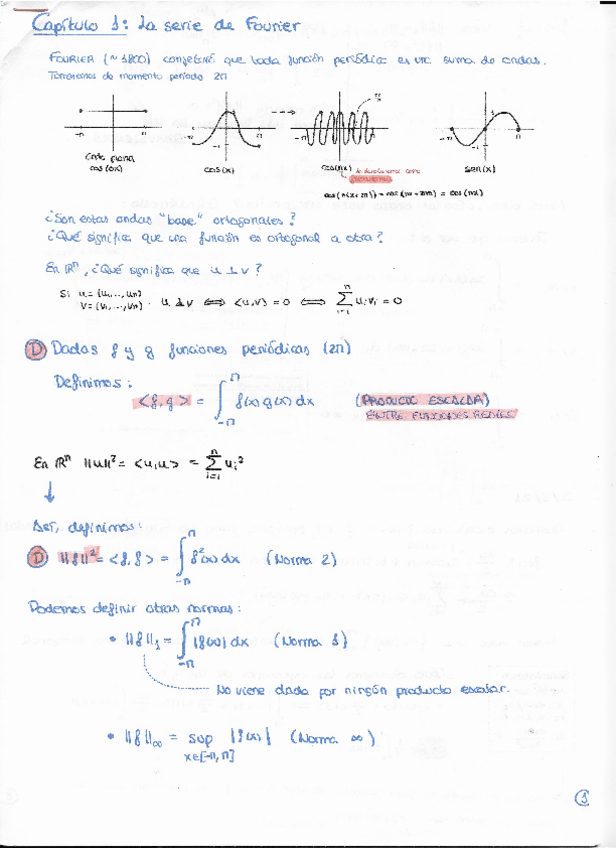 Capítulo 1: La serie de Fourier
FOURIER (~1800) conjeturó que toda función periódica es una suma de ondas.
Tomaremos de momento período 2π
-π π -π π -π π -π π
Onda plana
cos(0x)
cos(x)
cos(nx)
sen(x)
cos(n(x+2π)) = cos(nx+2πn) = cos(nx)
¿Son estas ondas "base" ortogonales?
¿Qué significa que una función es ortogonal a otra?
En ℝⁿ, ¿Qué significa que u ⊥ v?
Si u = (u₁,...,uₙ)
v = (v₁,...,vₙ) . u ⊥ v ⟺ <u,v> = 0 ⟺ ∑ᵢ₌₁ⁿ uᵢvᵢ = 0
D Dadas f y g funciones periódicas (2π)
Definimos:
<f,g> = ∫_{-π}^{π} f(x)g(x)dx (PRODUCTO ESCALAR)
ENTRE FUNCIONES REALES
En ℝⁿ ||u||² = <u,u> = ∑ᵢ₌₁ⁿ uᵢ²
↓
Así, definimos:
D ||f||² = <f,f> = ∫_{-π}^{π} f²(x)dx (Norma 2)
Podemos definir otras normas:
• ||f||₁ = ∫_{-π}^{π} |f(x)| dx (Norma 1)
No viene dada por ningún producto escalar.
• ||f||∞ = sup |f(x)| (Norma ∞)
x∈[-π,π]
1